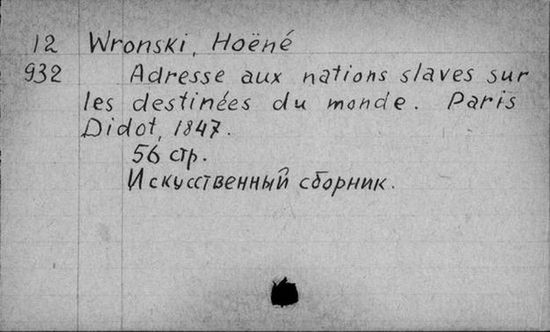 12 Wronski, Hoëné
932 Adresse aux nations slaves sur
les destinées du monde. Paris
Didot, 1847.
56 стр.
Искусственный сборник.